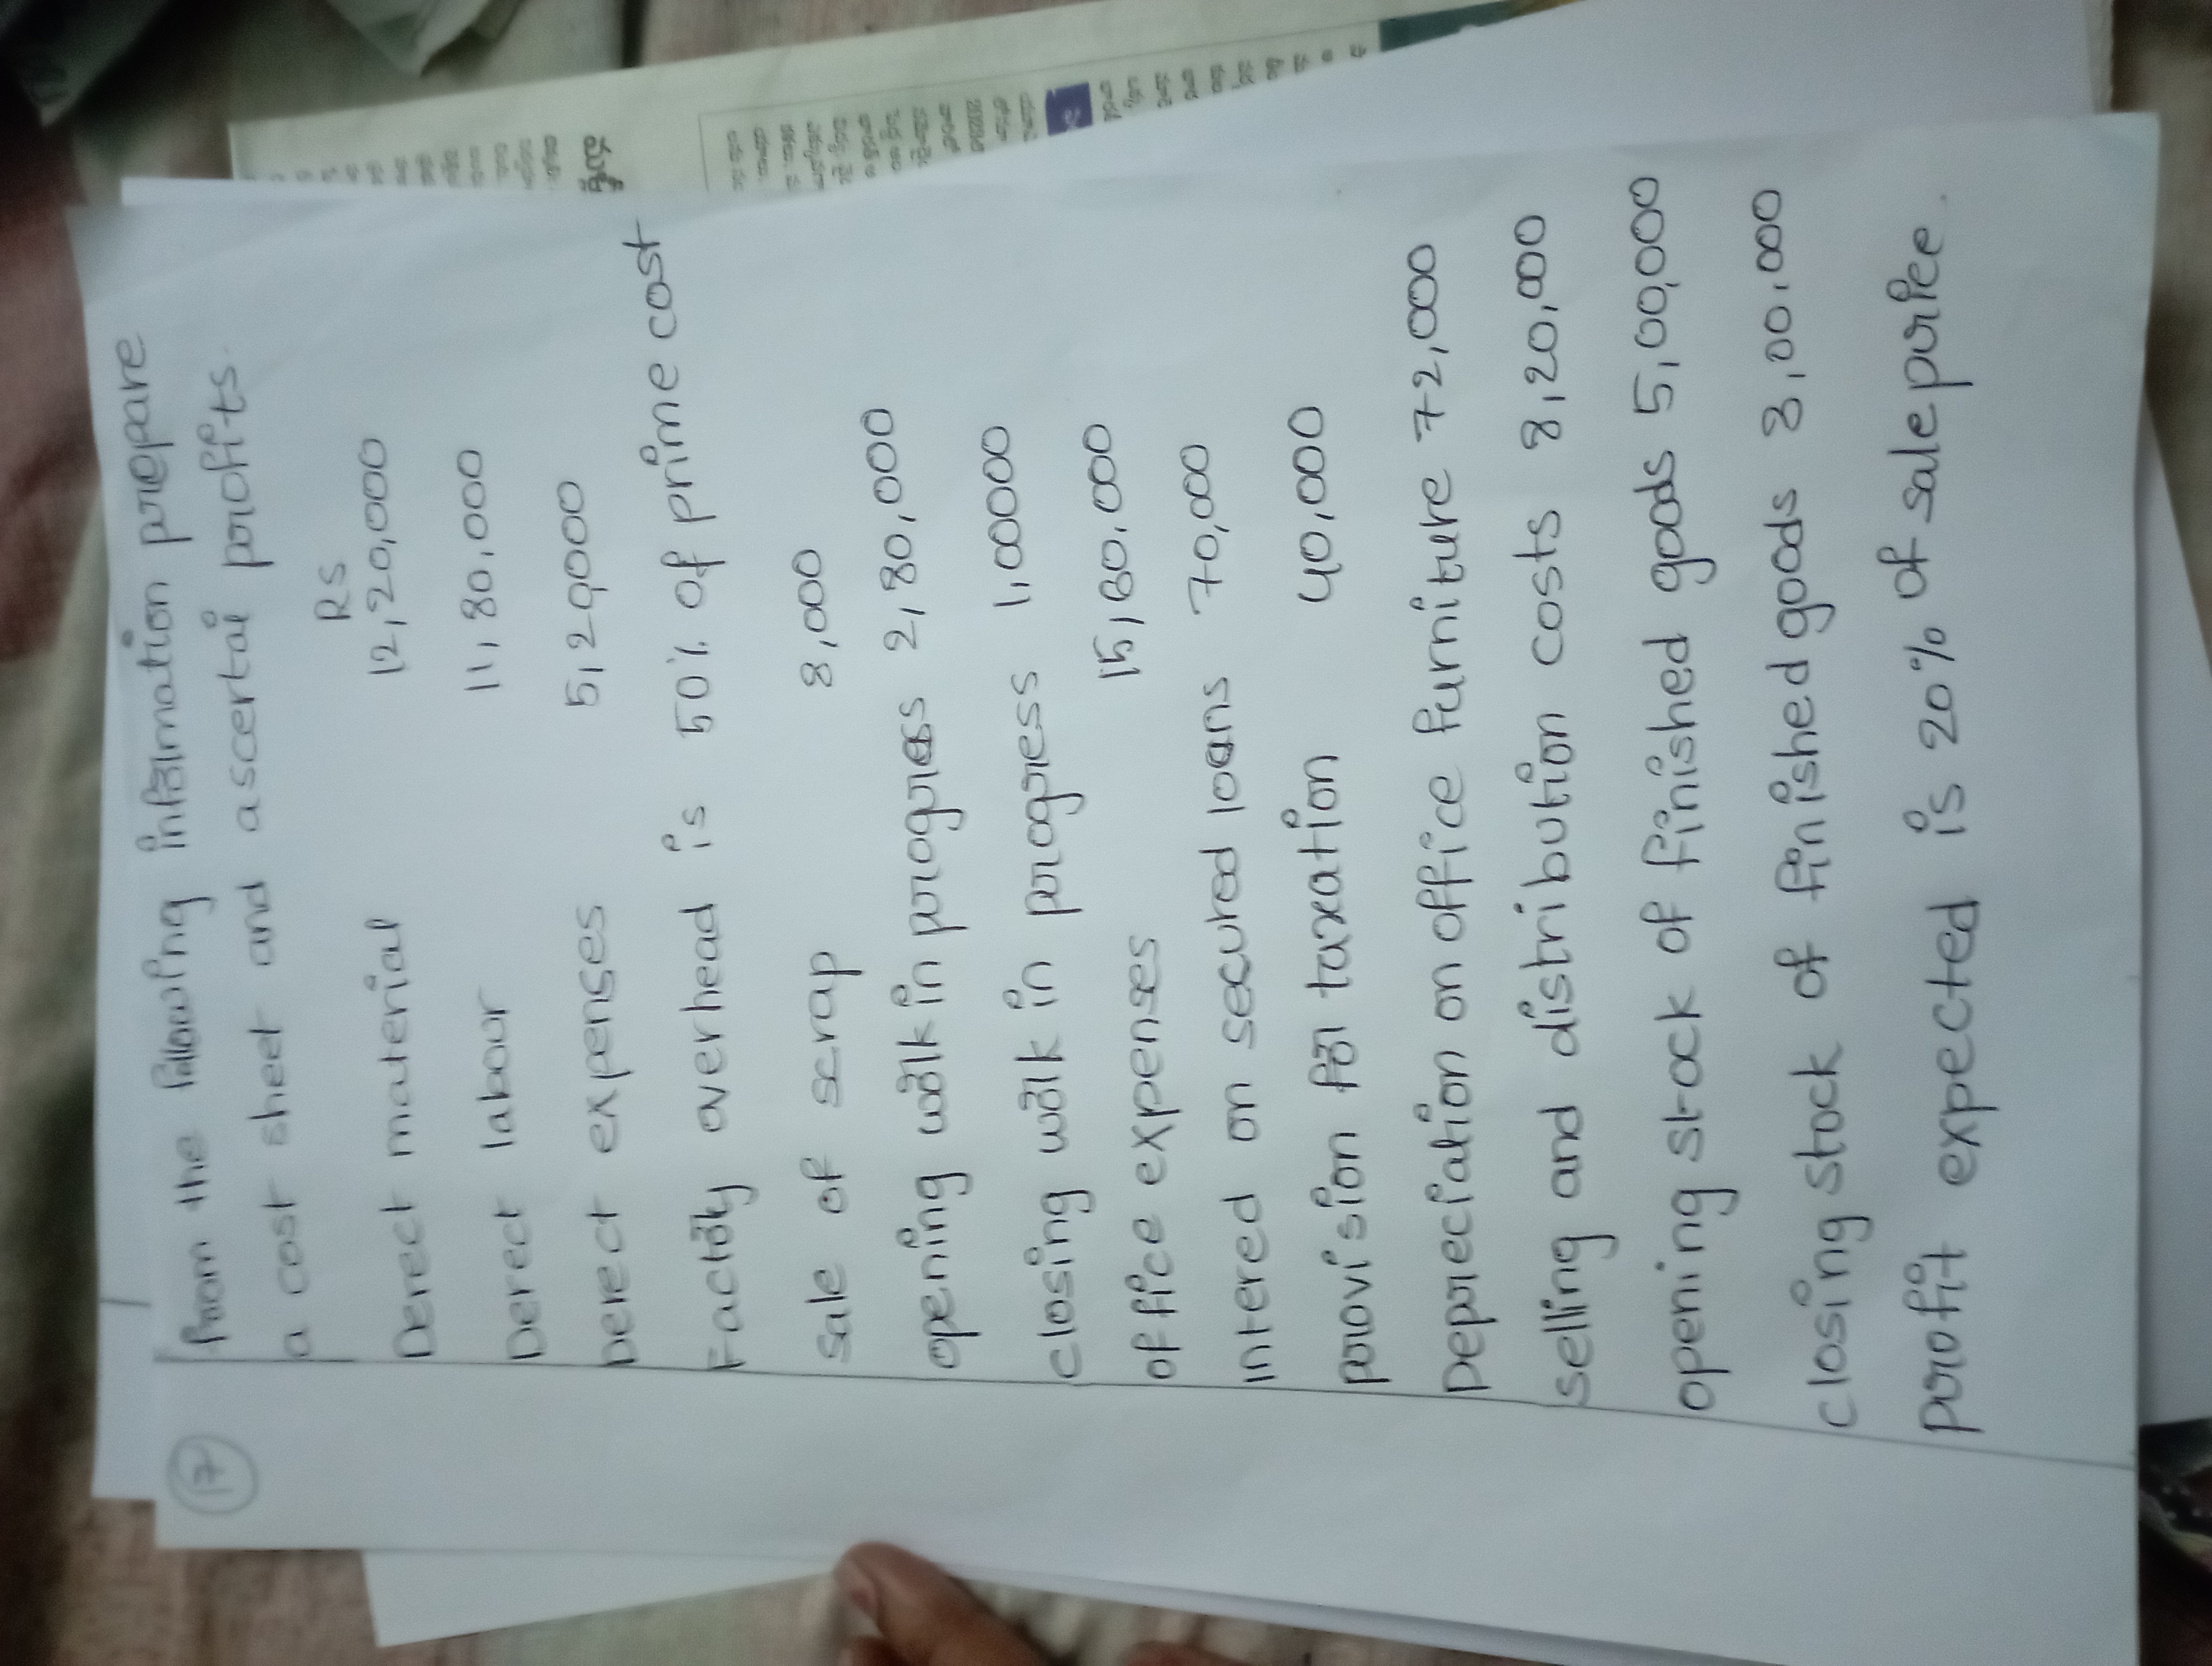 17
from the following information prepare
a cost sheet and ascertai profits.
RS
Derect material 12,20,000
Derect labour 11,80,000
Derect expenses 5,20,000
Factory overhead is 50% of prime cost
sale of scrap 8,000
opening work in progress 2,80,000
closing work in progress 1,00000
office expenses 15,60,000
intered on secured loans 70,000
provision for taxation 40,000
Depreciation on office furniture 72,000
selling and distribution costs 8,20,000
opening stock of finished goods 5,00,000
closing stock of finished goods 3,00,000
profit expected is 20% of sale price.